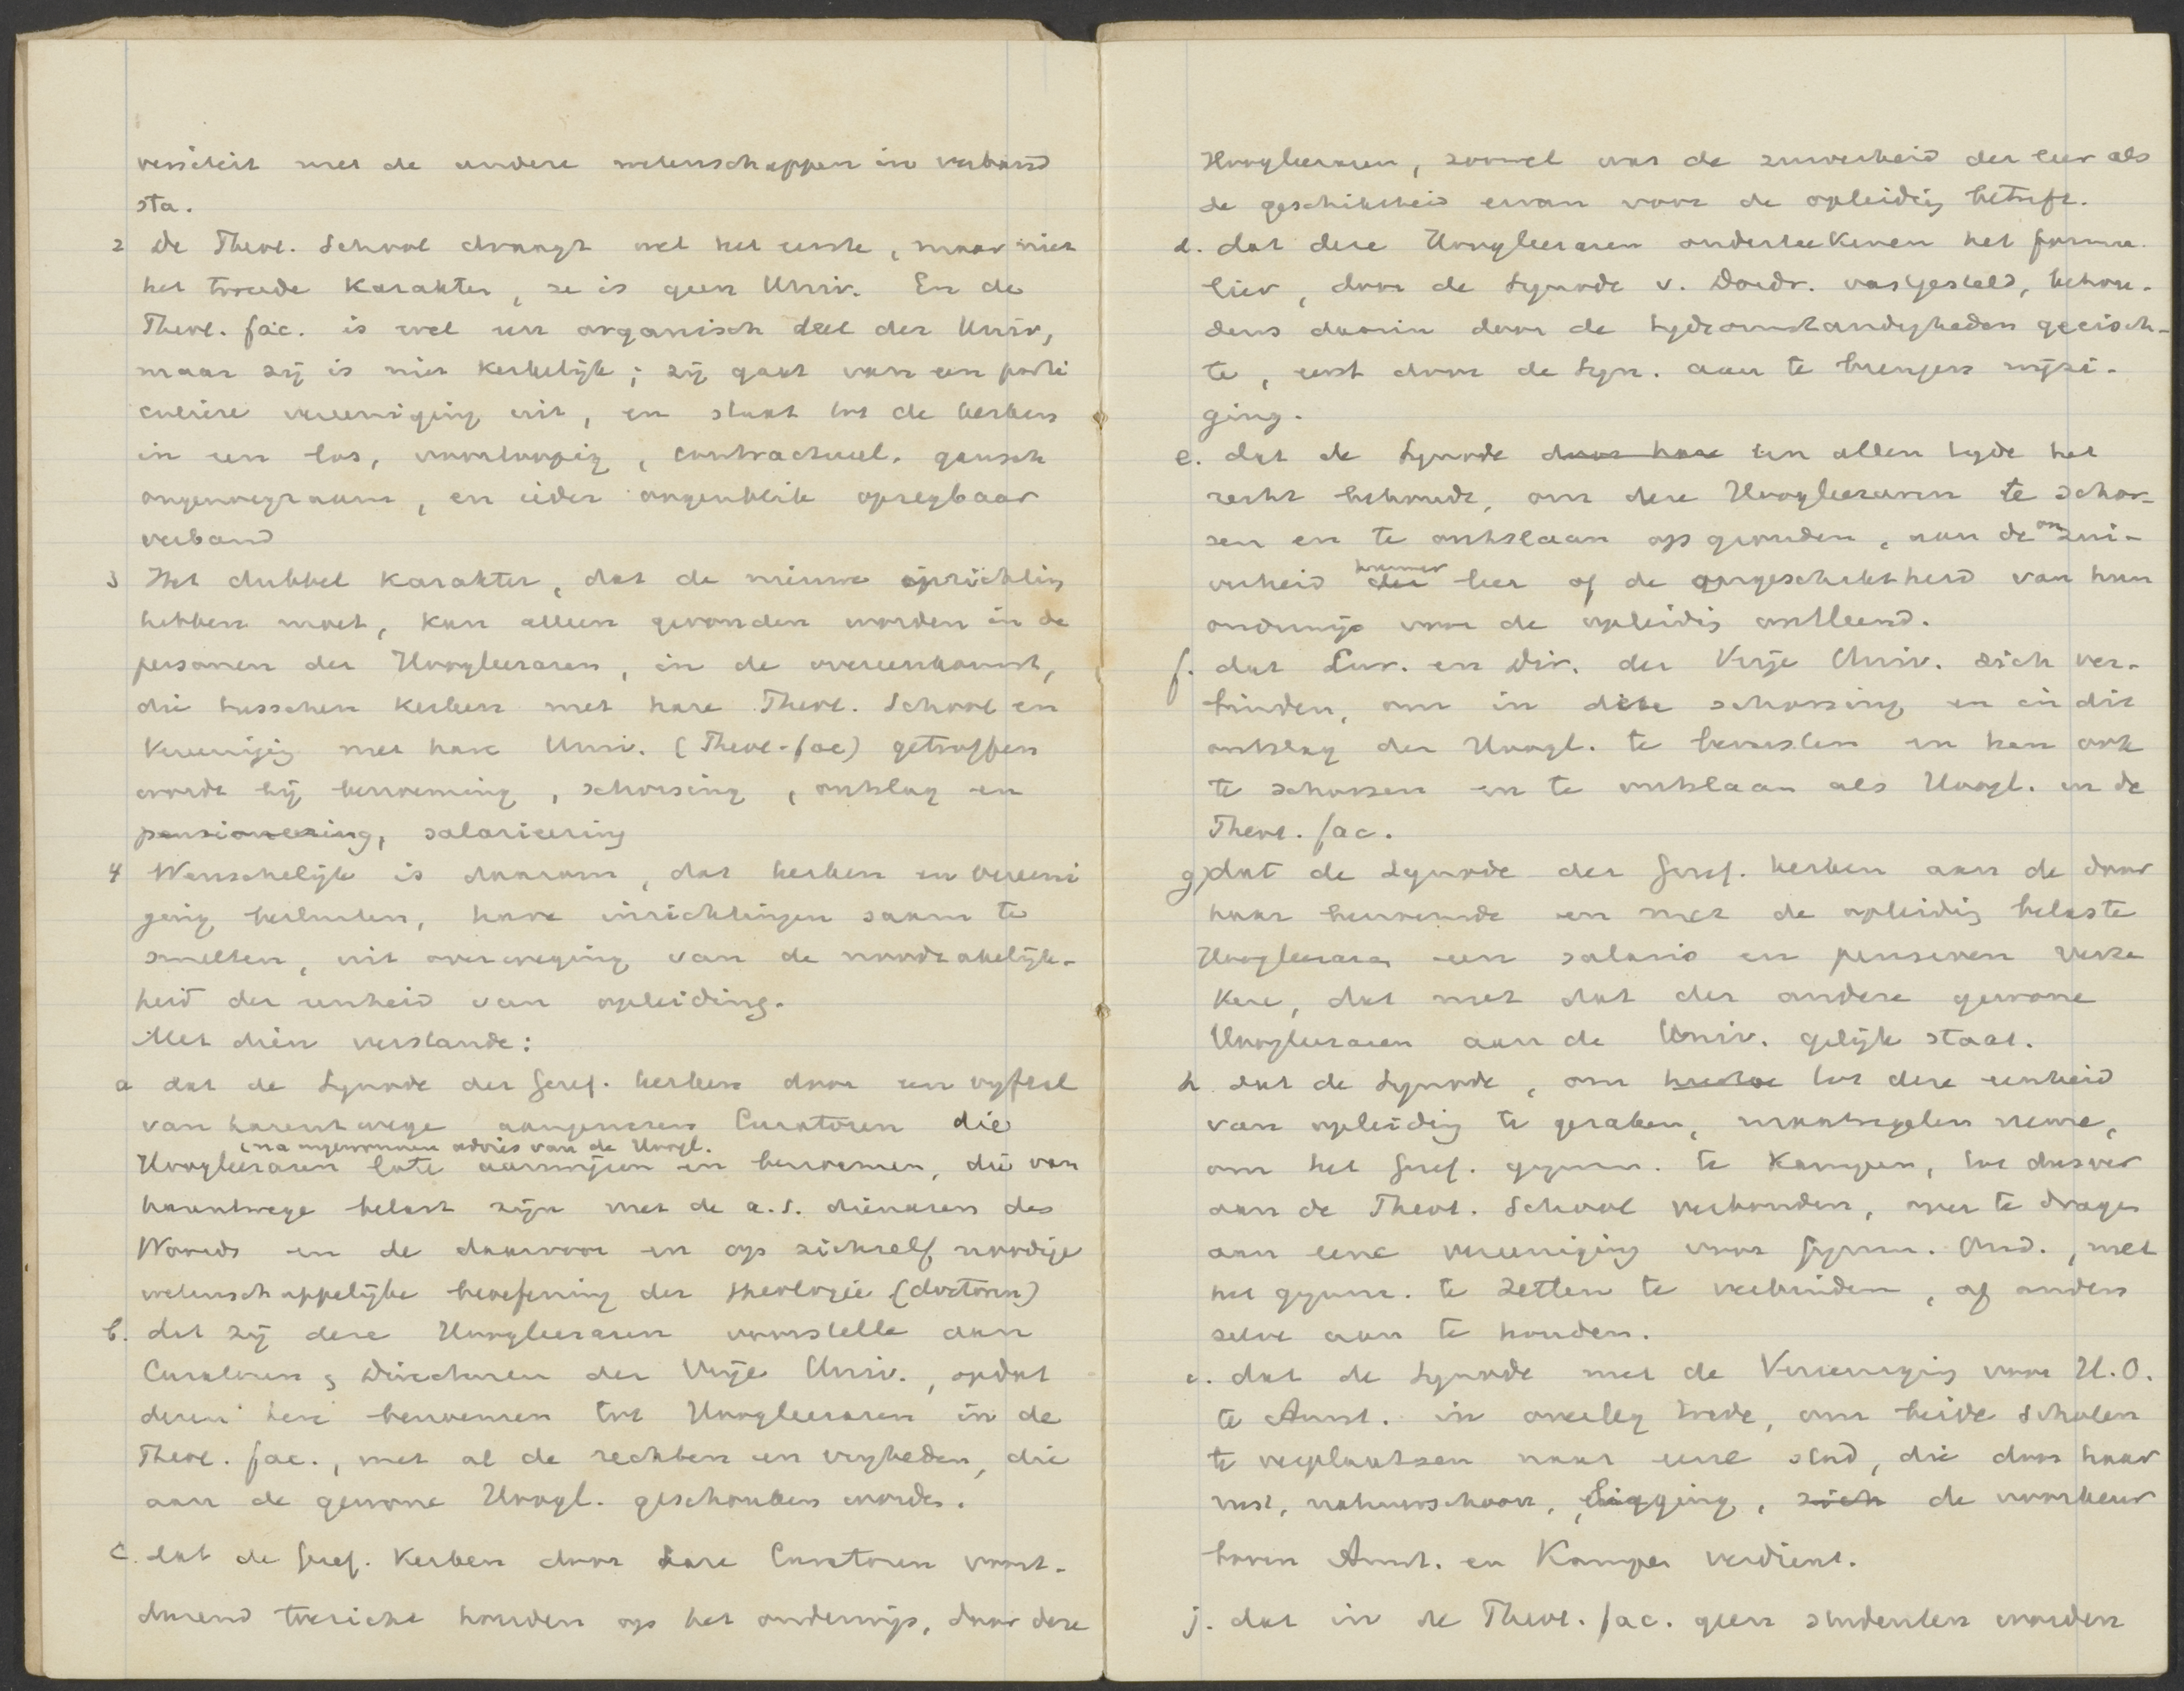 versiteit met de andere wetenschappen in verband
sta.
2 De Theol. School draagt wel het eerste, maar niet
het tweede karakter, ze is geen Univ. En de
Theol. fac. is wel een organisch deel der Univ,
maar zij is niet kerkelijk; zij gaat van een parti
culiere vereeniging uit, en staat tot de kerken
in een los, voorloopig, contractueel, gansch
ongenoegzaam, en ieder oogenblik opzegbaar
verband
3 Het dubbel karakter, dat de nieuwe oprichting
hebben moet, kan alleen gevonden worden in de
personen der Hoogleeraren, in de overeenkomst,
die tusschen kerken met hare Theol. School en
Vereeniging met hare Univ. (Theol. fac) getroffen
worde bij benoeming, schorsing, ontslag en
pensioneering, salarieering
4 Wenschelijk is daarom, dat kerken en vereeni
ging besluiten, hare inrichtingen saam te
smelten, uit overweging van de noodzakelijk-
heid der eenheid van opleiding.
Met dien verstande:
a dat de Synode der Geref. kerken door een vyftal
van harentwege aangewezen Curatoren die
, na ingewonnen advies van de Hoogl.
Hoogleeraren late aanwijzen en benoemen, die van
harentwege belast zijn met de a.s. dienaren des
Woords en de daarvoor en op zichzelf noodige
wetenschappelijke beoefening der theologie (doctoren)
b. dat zij deze Hoogleeraren voorstelle aan
Curatoren & Directeuren der Vrije Univ., opdat
dezen hen benoemen tot Hoogleeraren in de
Theol. fac., met al de rechten en vryheden, die
aan de gewone Hoogl. geschonken worden.
c. dat de Geref. Kerken door hare Curatoren voort-
durend toezicht houden op het onderwijs, door deze
Hoogleeraren, zoowel wat de zuiverheid der leer als
de geschiktheid ervan voor de opleiding betreft.
d. dat deze Hoogleeraren onderteekenen het formu-
lier, door de Synode v. Dordr. vastgesteld, behou-
dens daarin door de tydsomstandigheden geeisch-
te, eerst door de Syn. aan te brengen wijzi-
ging.
e. dat de Synode door haar ten allen tyde het
recht behoude, om deze Hoogleeraren te schor-
sen en te ontslaan op gronden, aan de onzui-
verheid der hunner leer of de ongeschiktheid van hun
onderwijs voor de opleiding ontleend.
f. dat Cur. en Dir. der Vrije Univ. zich ver-
binden, om in deze schorsing en in dit
ontslag der Hoogl. te berusten en hen ook
te schorsen en te ontslaan als Hoogl. in de
Theol. fac.
g) dat de Synode der Geref. kerken aan de door
haar benoemde en met de opleiding belaste
Hoogleeraren een salaris en pensioen verze
kere, dat met dat der andere gewone
Hoogleeraren aan de Univ. gelijk staat.
h. dat de Synode, om tot deze eenheid
van opleiding te geraken, maatregelen neme,
om het Geref. gymn. te Kampen, tot dusver
aan de Theol. School verbonden, over te dragen
aan eene vereeniging voor Gymn. Ond., met
het gymn. te Zetten te verbinden, of anders
zelve aan te houden.
i. dat de Synode met de Vereeniging voor H.O.
te Amst. in overleg trede, om beide scholen
te verplaatsen naar eene stad, die door haar
rust, natuurschoon, ligging, zich de voorkeur
boven Amst. en Kampen verdient.
j. dat in de Theol. fac. geen studenten worden